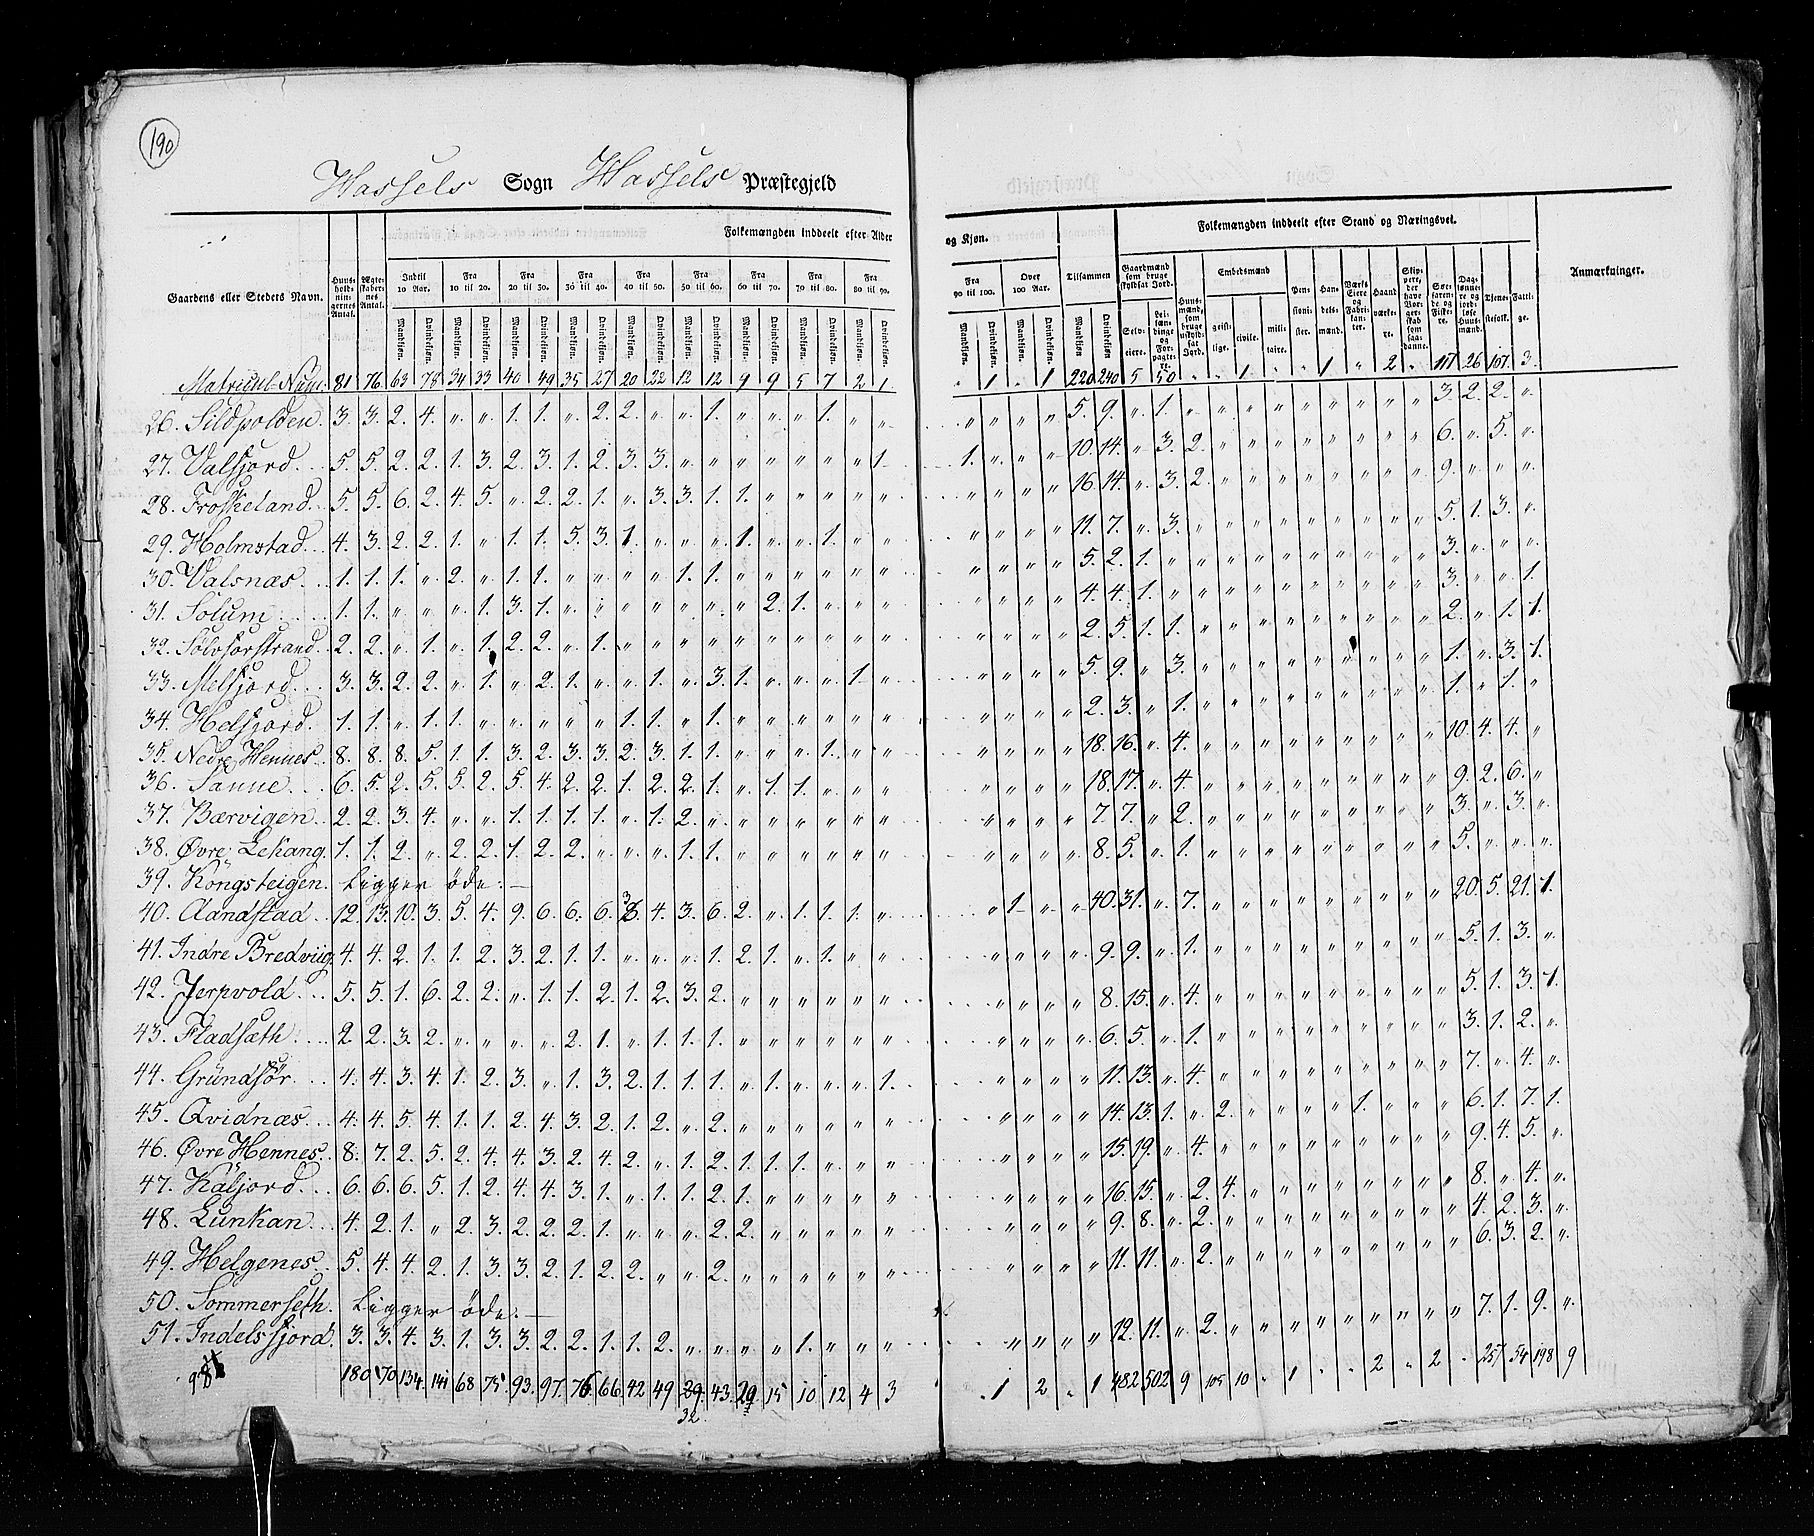 190
Hassels Sogn Hassels Præstegjeld
Folkemængden inddeelt efter Alder og Kjøn. Folkemængden inddeelt efter Stand og Næringsvei.
Gaardens eller Stedets Navn. Huusholdningernes Antal. Ægteskabernes Antal. Indtil 10 Aar. Fra 10 til 20. Fra 20 til 30. Fra 30 til 40. Fra 40 til 50. Fra 50 til 60. Fra 60 til 70. Fra 70 til 80. Fra 80 til 90. Fra 90 til 100. Over 100 Aar. Tilsammen Gaardmænd som bruge skyldsat Jord. Huusmænd, som bruge uskyldsat Jord. Embedsmænd Pensionister. Handelsmænd. Værks Eiere og Fabrikanter. Haandværkere. Skippere, der have Borgerskab som saadanne. Søefarende og Fiskere. Daglønnere og jordløse Huusmænd. Tjenestefolk. Fattige. Anmærkninger.
Mandkjøn. Qvindekjøn. Mandkjøn. Qvindekjøn. Mandkjøn. Qvindekjøn. Mandkjøn. Qvindekjøn. Mandkjøn. Qvindekjøn. Mandkjøn. Qvindekjøn. Mandkjøn. Qvindekjøn. Mandkjøn. Qvindekjøn. Mandkjøn. Qvindekjøn. Mandkjøn. Qvindekjøn. Mandkjøn. Qvindekjøn. Mandkjøn Qvindekjøn. Selveiere. Leilændinge og Forpagtere. geistlige. civile. militaire.
Matricul Num: 81 76 63 78 34 33 40 49 35 27 20 22 12 12 9 9 5 7 2 1 " 1 " 1 220 240 5 50 " " 1 " " 1 " 2 " 117 26 107 3
26. Sildpolden 3. 3. 2. 4. " " 1. 1. " 2. 2. " " 1. " " " 1. " " " " " " 5. 9. " 1. " " " " " " " " " 3. 2. 2. "
27. Valfjord 5. 5. 2. 2. 1. 3. 2. 3. 1. 2. 3. 3. " " " " " " " 1. 1. " " " 10. 14. " 3. 2. " " " " " " " " 6. " 5. "
28. Froskeland 5. 5. 6. 2. 4. 5. " 2. 2. 1. " 3. 3. 1. 1. " " " " " " " " " 16. 14. " 3. 2. " " " " " " " " 9. " " "
29. Holmstad 4. 3. 2. 2. 1. " 1. 1. 5. 3. 1. " " " 1. " " 1. " " " " " " 11. 7. " 3. " " " " " " " " " 5. 1. 3. "
30. Valsnæs 1. 1. 1. " 2. " 1. 1. " " " " 1. 1. " " " " " " " " " " 5. 2. 1. " " " " " " " " " " 3. " " "
31. Solum 1. 1. " " " 1. 3. 1. " " " " " " " 2. 1. " " " " " " " 4. 4. 1. " " " " " " " " " " 3. " " 1.
32. Sølvforstrand 2. 2. " 1. " 1. 2. 2. " 1. " " " " " " " " " " " " " " 2. 5. 1. 1. " " " " " " " " " 2. " 1. 1.
33. Melfjord 3. 3. 2. 2. " 1. " 2. 1. " " 1. " 3. 1. " " " 1. " " " " " 5. 9. " 3. " " " " " " " " " 1. " 3. 1.
34. Helfjord 1. 1. " 1. 1. " " " " " 1. 1. " 1. " " " " " " " " " " 2. 3. " 1. " " " " " " " " " 1. " 1. "
35. Nedre Hennes 8. 8. 8. 5. 1. 1. 3. 2. 3. 3. 2. 3. 1. 1. " " " 1. " " " " " " 18. 16. " 4. " " " " " " " " " 10. 4. 4. "
36. Sanne 6. 5. 2. 5. 5. 2. 5. 4. 2. 2. 1. 2. 2. 1. " 1. 1. " " " " " " " 18. 17. " 4. " " " " " " " " " 9. 2. 6. "
37. Bærvigen 2. 2. 3. 4. " " 1. 1. 1. 1. " 1. 2. " " " " " " " " " " " 7. 7. " 2. " " " " " " " " " 3. " 3. "
38. Øvre Lekang 1. 1. 2. " 2. 2. 1. 2. 2. " " " 1. 1. " " " " " " " " " " 8. 5. " 1. " " " " " " " " " 5. " " "
39. Kongsteigen. Ligger øde.
40. Aandstad 12. 13. 10. 3. 5. 4. 9. 6. 6. 6. 3. 4. 3. 6. 2. " 1. 1. 1. " " 1 " " 40. 31. " 7. " " " " " " " " " 20. 5. 21. 1.
41. Indre Bredviig 4. 4. 2. 1. 1. 2. 3. 2. 1. 1. " " " 1. 2. 1. " 1. " " " " " " 9. 9. " 1. " " " " " " " " " 5. 1. 3. "
42. Jerpvold 5. 5. 1. 6. 2. 2. " 1. 1. 2. 1. 2. 3. 2. " " " " " " " " " " 8. 15. " 4. " " " " " " " " " 5. 1. 3. 1.
43. Fladsæth 2. 2. 3. 2. " " " " 2. 1. " 1. 1. 1. " " " " " " " " " " 6. 5. " 1. " " " " " " " " " 3. 1. 2. "
44. Grundfør 4. 4. 3. 4. 1. 2. 3. " 1. 3. 2. 1. 1. 1. " 1. " " " 1. " " " " 11. 13. " 4. " " " " " " " " " 7. " 4. "
45. Qvidnæs 4. 4. 5. 4. 1. 1. 2. 4. 3. 2. 1. 2. " 2. " " " " " " " " " " 14. 13. 1. " 2. " " " " 1. " " " 6. 1. 7. 1.
46. Øvre Hennes 8. 7. 2. 5. 2. 4. 4. 3. 2. 4. 2. " 1. 2. 1. 1. 1. " " " " " " " 15. 19. " 4. " " " " " " " " " 9. 4. 5. "
47. Kaljord 6. 6. 6. 5. 1. 2. 4. 4. 3. 1. " 1. 1. 2. 1. " " " " " " " " " 16. 15. " 2. 4. " " " " " " " " 8. " 4. "
48. Lunkan 4. 2. 1. " 2. 3. 2. 2. 2. 1. " " " 2. 2. " " " " " " " " " 9. 8. " 2. " " " " " " " " " 4. 2. 3. "
49. Helgenes 5. 4. 4. 2. 1. 3. 3. 2. 1. 2. 2. " " 2. " " " " " " " " " " 11. 11. " 2. " " " " " " " " " 6. 3. 2. "
50. Sommerseth. Ligger øde.
51. Indelsfjord. 3. 3. 4. 3. 1. 3. 3. 2. 2. 1. 1. 2. " " " " 1. " " " " " " " 12. 11. " 2. " " " " " " " " " 7. 1. 9. "
180 170 134 141 68 75 93. 97. 76 66 42 49 39 43. 20 15 10 12 4 3 1 2 " 1 482 502 9 105 10 " 1 " 1 " " 2 " 2 " 257 54 198 9
32